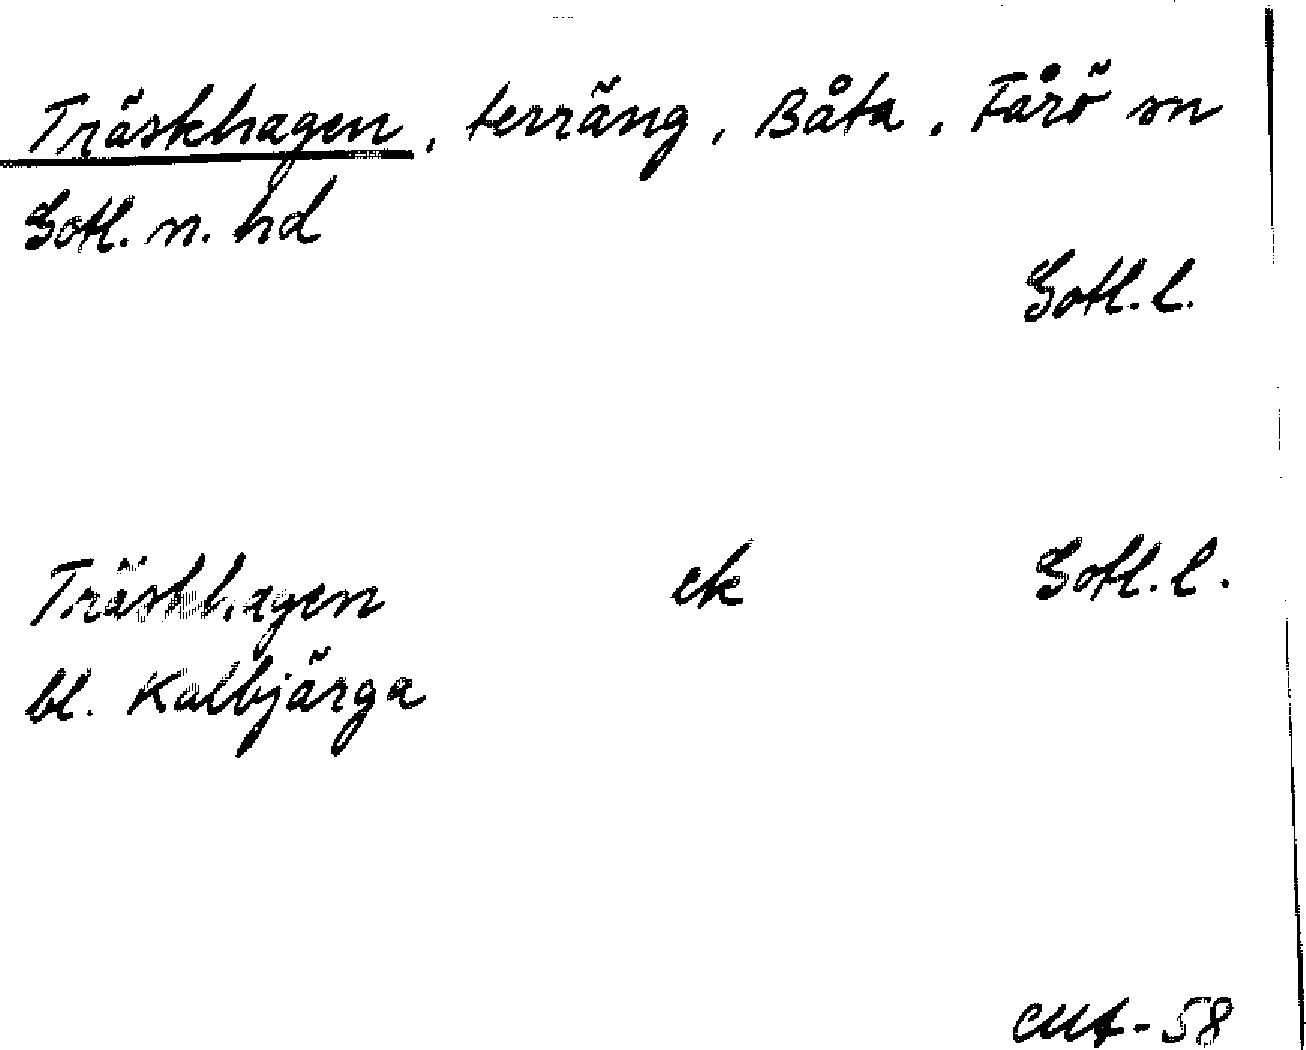 Träskhagen, terräng, Båta, Fårö sn
Gotl. n. hd
Gotl. l.
Träskhagen ek Gotl. l.
bl. Kalbjärga
-58